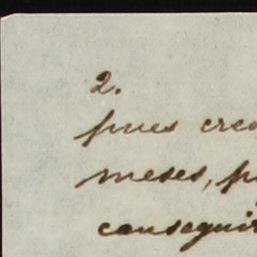 2.
pues creo
meses, p
conseguir